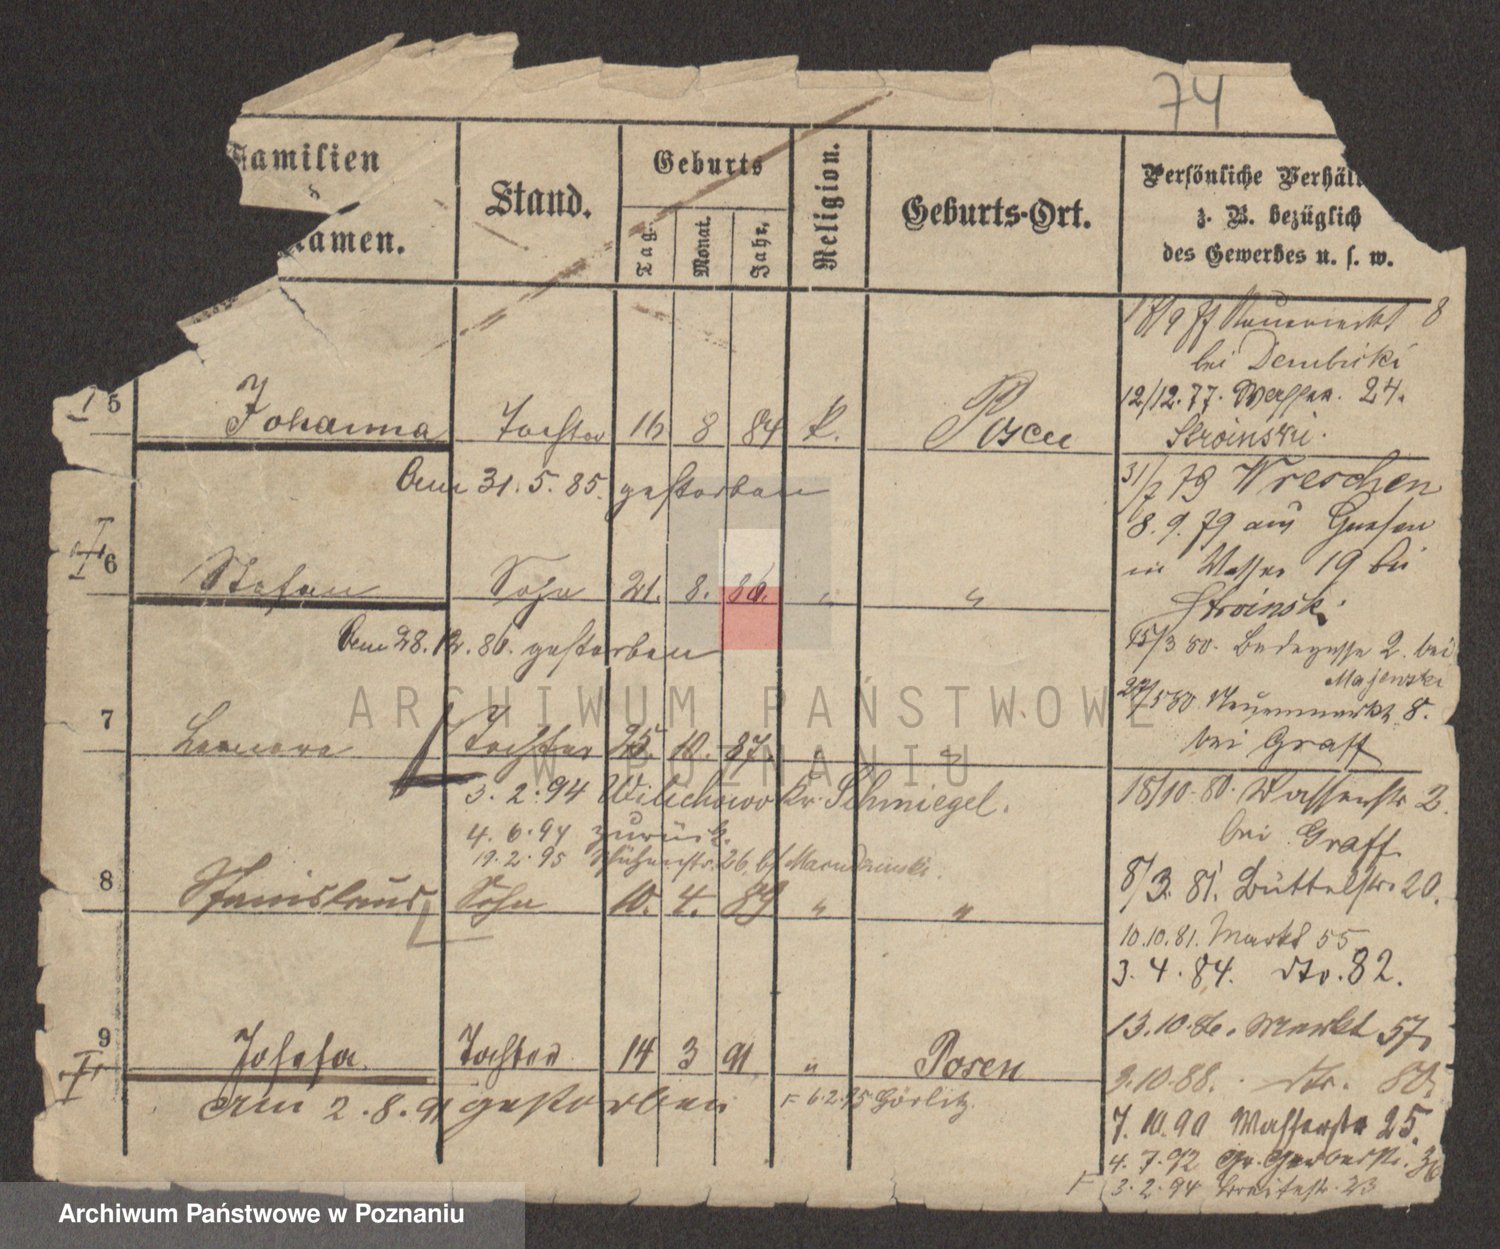 74
Familien
namen.
Stand.
Geburts
Tag.
Monat.
Jahr.
Religion.
Geburts-Ort.
Persönliche Verhäl
z. B. bezüglich
des Gewerbes u. s. w.
5 Johanna Tochter 16 8 84 k. Posen
Am 31. 5. 85. gestorben
6 Stefan Sohn 21. 8. 86. " "
Am 28. 12. 86. gestorben
7 Leonore Tochter 25. 10. 87. " "
3. 2. 94 Wilichowo Kr. Schmiegel.
4. 6. 94 zurück.
19. 2. 95 Schützenstr. 26 bf.
8 Stanislaus Sohn 10. 4. 89 " "
9 Josefa Tochter 14 3 91 " Posen
Am 2. 8. 91 gestorben
F 6. 2. 95 Görlitz.
Neuermarkt 8
bei Dembicki
12/12. 77. Wasser. 24.
Stroinski.
31/7 79 Wreschen
8. 9. 79 aus Gnesen
in Wasser 19 bei
Stroinski
15/3 80. 2. bei
Majewski
27/5 80 Neuenmarkt 8.
bei Graff
18/10 80. Wasserstr 2.
bei Graff
8/3. 81. Büttelstr. 20.
10. 10. 81. Markt 55
3. 4. 84. dto. 82.
13. 10. 86. Markt 57
9. 10. 88. dto. 80
7. 10. 90 Wasserstr 25.
4. 7. 92 Gr. Gerberstr. 36
F 3. 2. 94 Breitestr. 23
ARCHIWUM PAŃSTWOWE
W POZNANIU
Archiwum Państwowe w Poznaniu